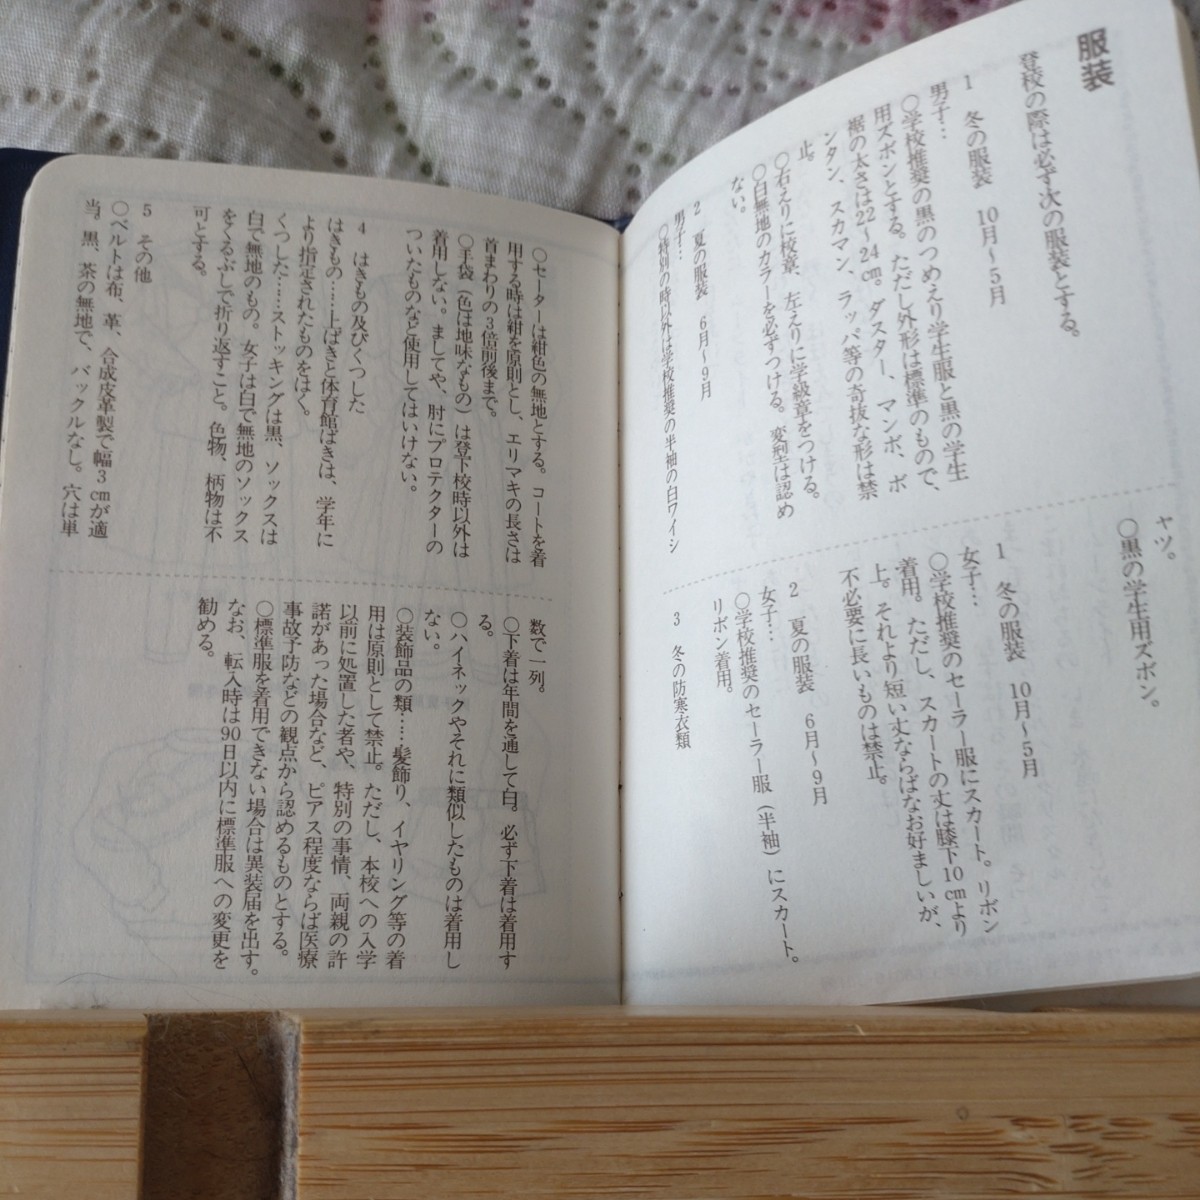 服装
登校の際は必ず次の服装とする。
1 冬の服装 10月〜5月
男子…
○学校推奨の黒のつめえり学生服と黒の学生
用ズボンとする。ただし外形は標準のもので、
裾の太さは22〜24cm。ダスター、マンボ、ボ
ンタン、スカマン、ラッパ等の奇抜な形は禁
止。
○右えりに校章、左えりに学級章をつける。
○白無地のカラーを必ずつける。変型は認め
ない。
2 夏の服装 6月〜9月
男子…
○特別の時以外は学校推奨の半袖の白ワイシ
ャツ。
○黒の学生用ズボン。
1 冬の服装 10月〜5月
女子…
○学校推奨のセーラー服にスカート。リボン
着用。ただし、スカートの丈は膝下10cmより
上。それより短い丈ならばなお好ましいが、
不必要に長いものは禁止。
2 夏の服装 6月〜9月
女子…
○学校推奨のセーラー服（半袖）にスカート。
リボン着用。
3 冬の防寒衣類
○セーターは紺色の無地とする。コートを着
用する時は紺を原則とし、エリマキの長さは
首まわりの3倍前後まで。
○手袋（色は地味なもの）は登下校時以外は
着用しない。ましてや、肘にプロテクターの
ついたものなど使用してはいけない。
4 はきもの及びくつした
はきもの……上ばきと体育館ばきは、学年に
より指定されたものをはく。
くつした……ストッキングは黒、ソックスは
白で無地のもの。女子は白で無地のソックス
をくるぶしで折り返すこと。色物、柄物は不
可とする。
5 その他
○ベルトは布、革、合成皮革製で幅3cmが適
当。黒、茶の無地で、バックルなし。穴は単
数で一列。
○下着は年間を通して白。必ず下着は着用す
る。
○ハイネックやそれに類似したものは着用し
ない。
○装飾品の類……髪飾り、イヤリング等の着
用は原則として禁止。ただし、本校への入学
以前に処置した者や、特別の事情、両親の許
諾があった場合など、ピアス程度ならば医療
事故予防などの観点から認めるものとする。
○標準服を着用できない場合は異装届を出す。
なお、転入時は90日以内に標準服への変更を
勧める。